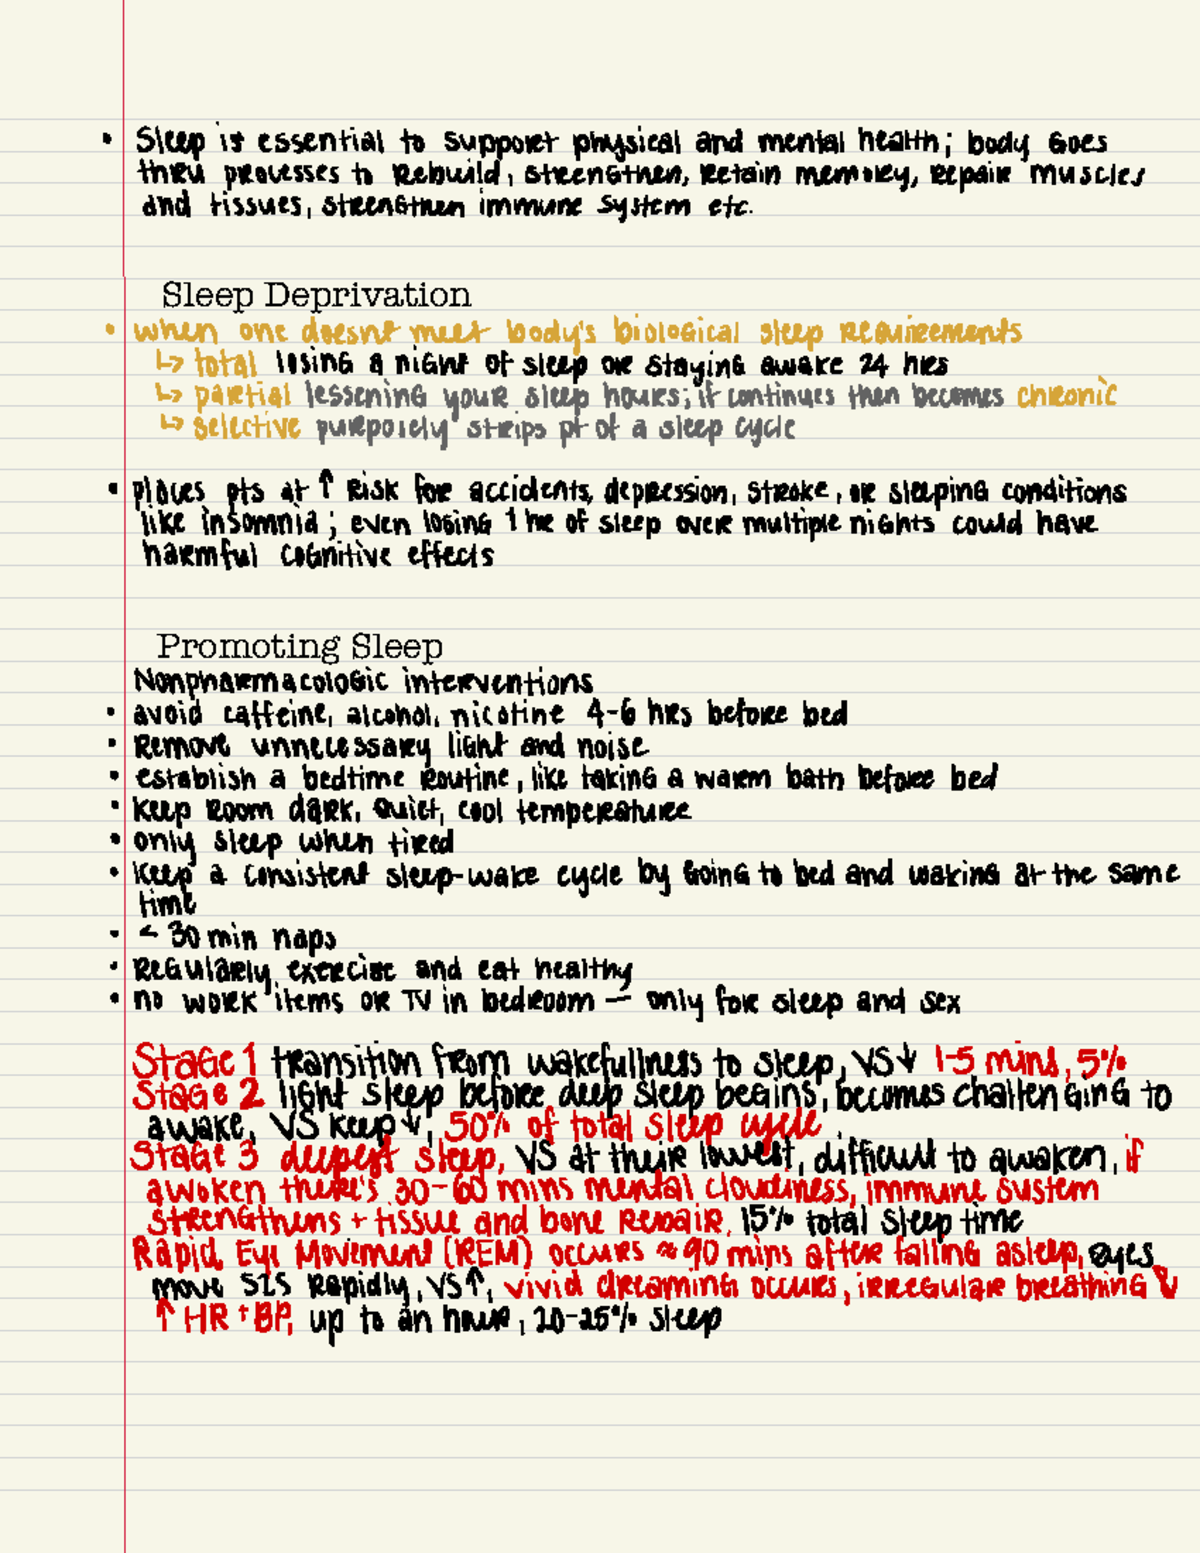 • Sleep is essential to support physical and mental health; body goes
thru processes to rebuild, strengthen, retain memory, repair muscles
and tissues, strengthen immune system etc.
Sleep Deprivation
• when one doesnt meet body's biological sleep requirements
↳ total losing a night of sleep or staying awake 24 hrs
↳ partial lessening your sleep hours; if continues then becomes chronic
↳ selective purposely strips pt of a sleep cycle
• places pts at ↑ risk for accidents, depression, stroke, or sleeping conditions
like insomnia; even losing 1 hr of sleep over multiple nights could have
harmful cognitive effects
Promoting Sleep
Nonpharmacologic interventions
• avoid caffeine, alcohol, nicotine 4-6 hrs before bed
• Remove unnecessary light and noise
• establish a bedtime routine, like taking a warm bath before bed
• keep room dark, quiet, cool temperature
• only sleep when tired
• keep a consistent sleep-wake cycle by going to bed and waking at the same
time
• < 30 min naps
• Regularly exercise and eat healthy
• no work items or TV in bedroom — only for sleep and sex
Stage 1 transition from wakefullness to sleep, VS↓ 1-5 mins, 5%
Stage 2 light sleep before deep sleep begins, becomes challenging to
awake, VS keep↓, 50% of total sleep cycle
Stage 3 deepest sleep, VS at their lowest, difficult to awaken, if
awoken there's 30-60 mins mental cloudiness, immune system
strengthens + tissue and bone repair, 15% total sleep time
Rapid Eye Movement (REM) occurs ≈ 90 mins after falling asleep, eyes
move SIS rapidly, VS↑, vivid dreaming occurs, irregular breathing
↑ HR + BP, up to an hour, 20-25% sleep